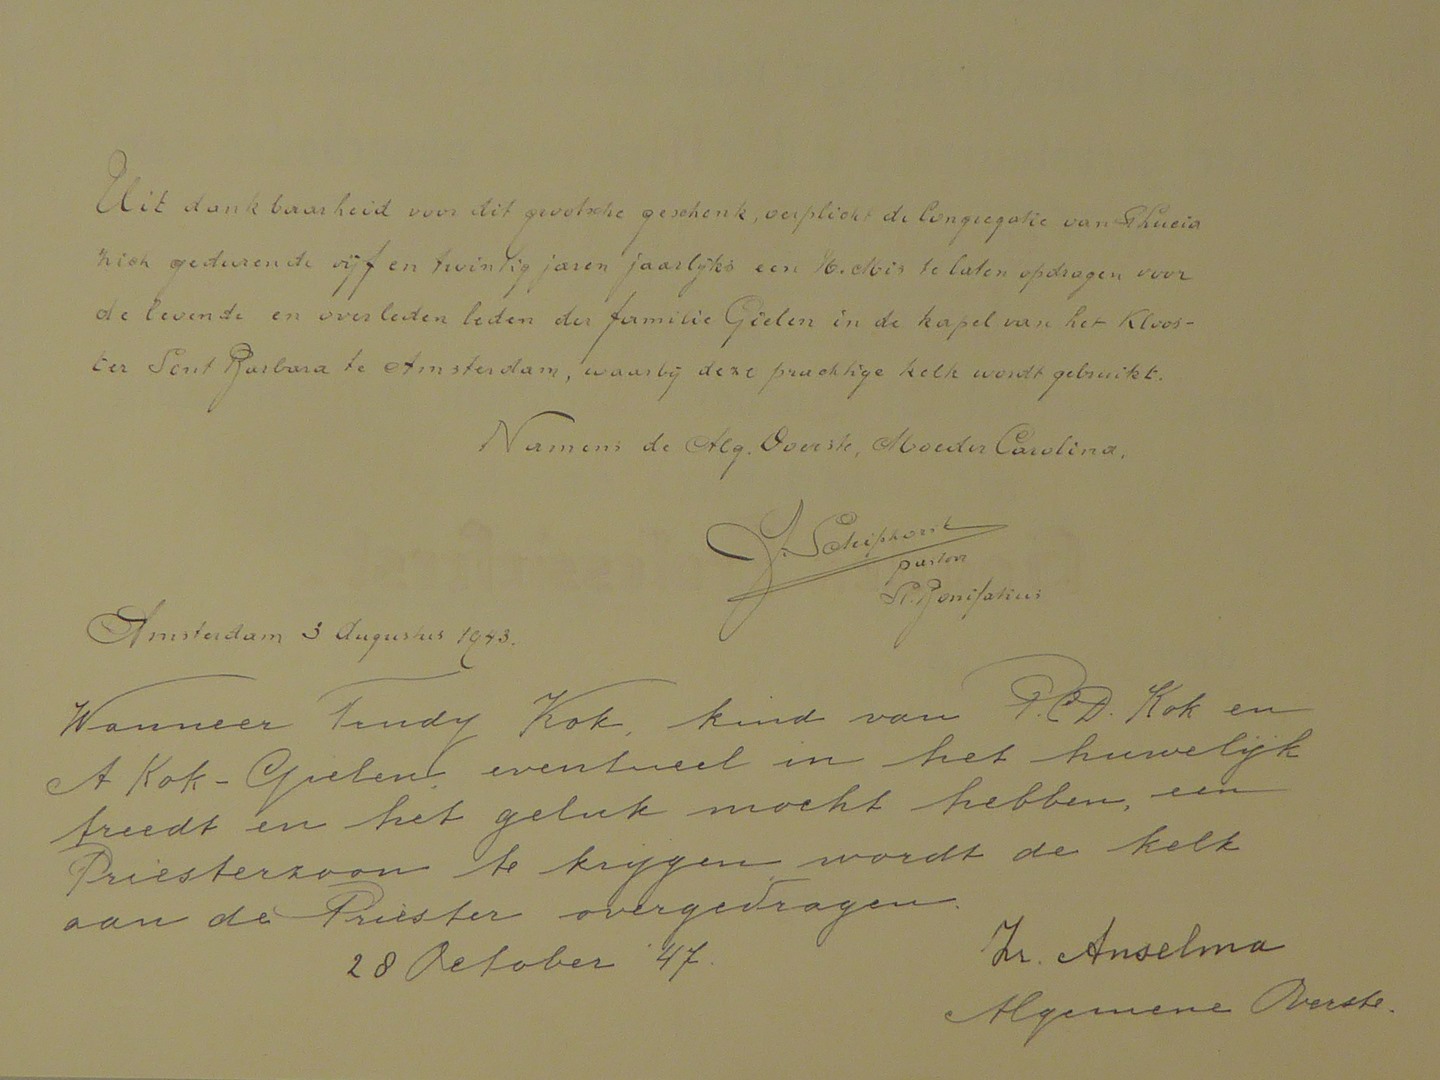 Uit dankbaarheid voor dit grootsche geschenk, verplicht de Congregatie van St Lucia
zich gedurende vijf en twintig jaren jaarlijks een H. Mis te laten opdragen voor
de levende en overleden leden der familie Gielen in de kapel van het Kloos-
ter Sint Barbara te Amsterdam, waarbij deze prachtige kelk wordt gebruikt.
Namens de Alg. Overste, Moeder Carolina,
J. Scheiphorst
pastoor
St. Bonifatius
Amsterdam 3 Augustus 1943.
Wanneer Trudy Kok, kind van P.C.D. Kok en
A Kok-Gielen, eventueel in het huwelijk
treedt en het geluk mocht hebben, een
Priesterzoon te krijgen wordt de kelk
aan de Priester overgedragen.
28 October '47.
Zr. Anselma
Algemene Overste.